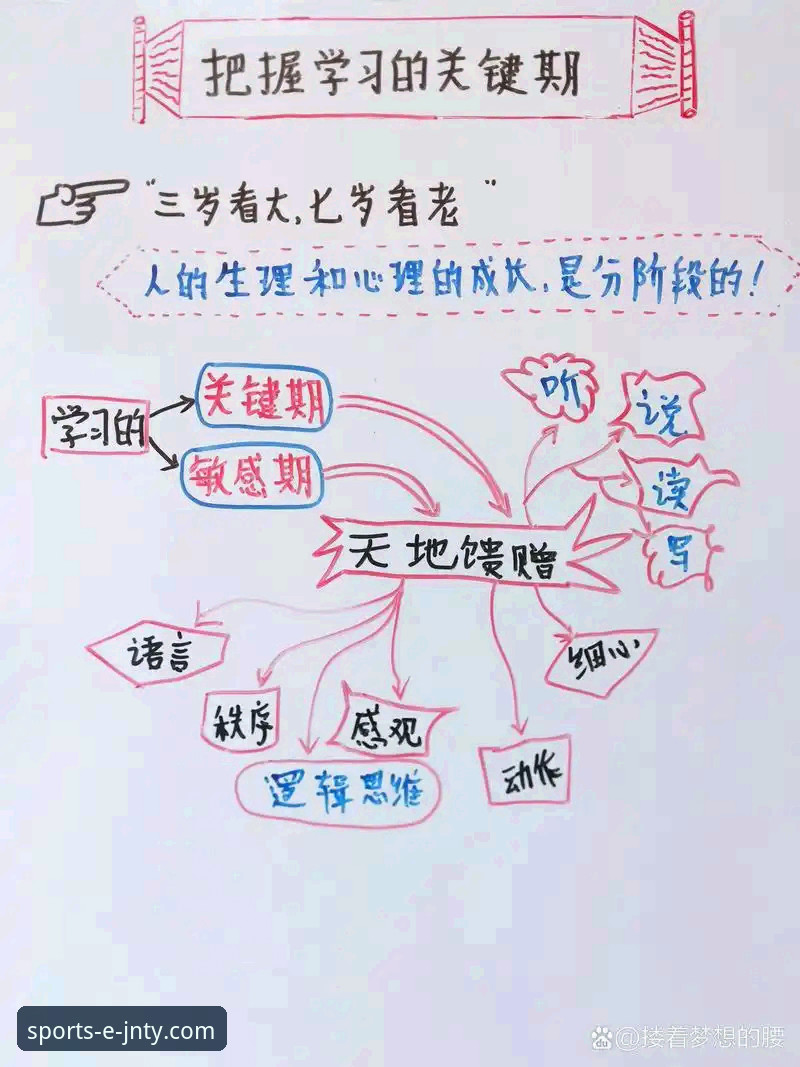 把握学习的关键期
"三岁看大,七岁看老"
人的生理和心理的成长,是分阶段的!
学习的
关键期
敏感期
听
说
读
写
天地馈赠
语言
秩序
感观
逻辑思维
动作
细小
sports-e-jnty.com
@搂着梦想的腰